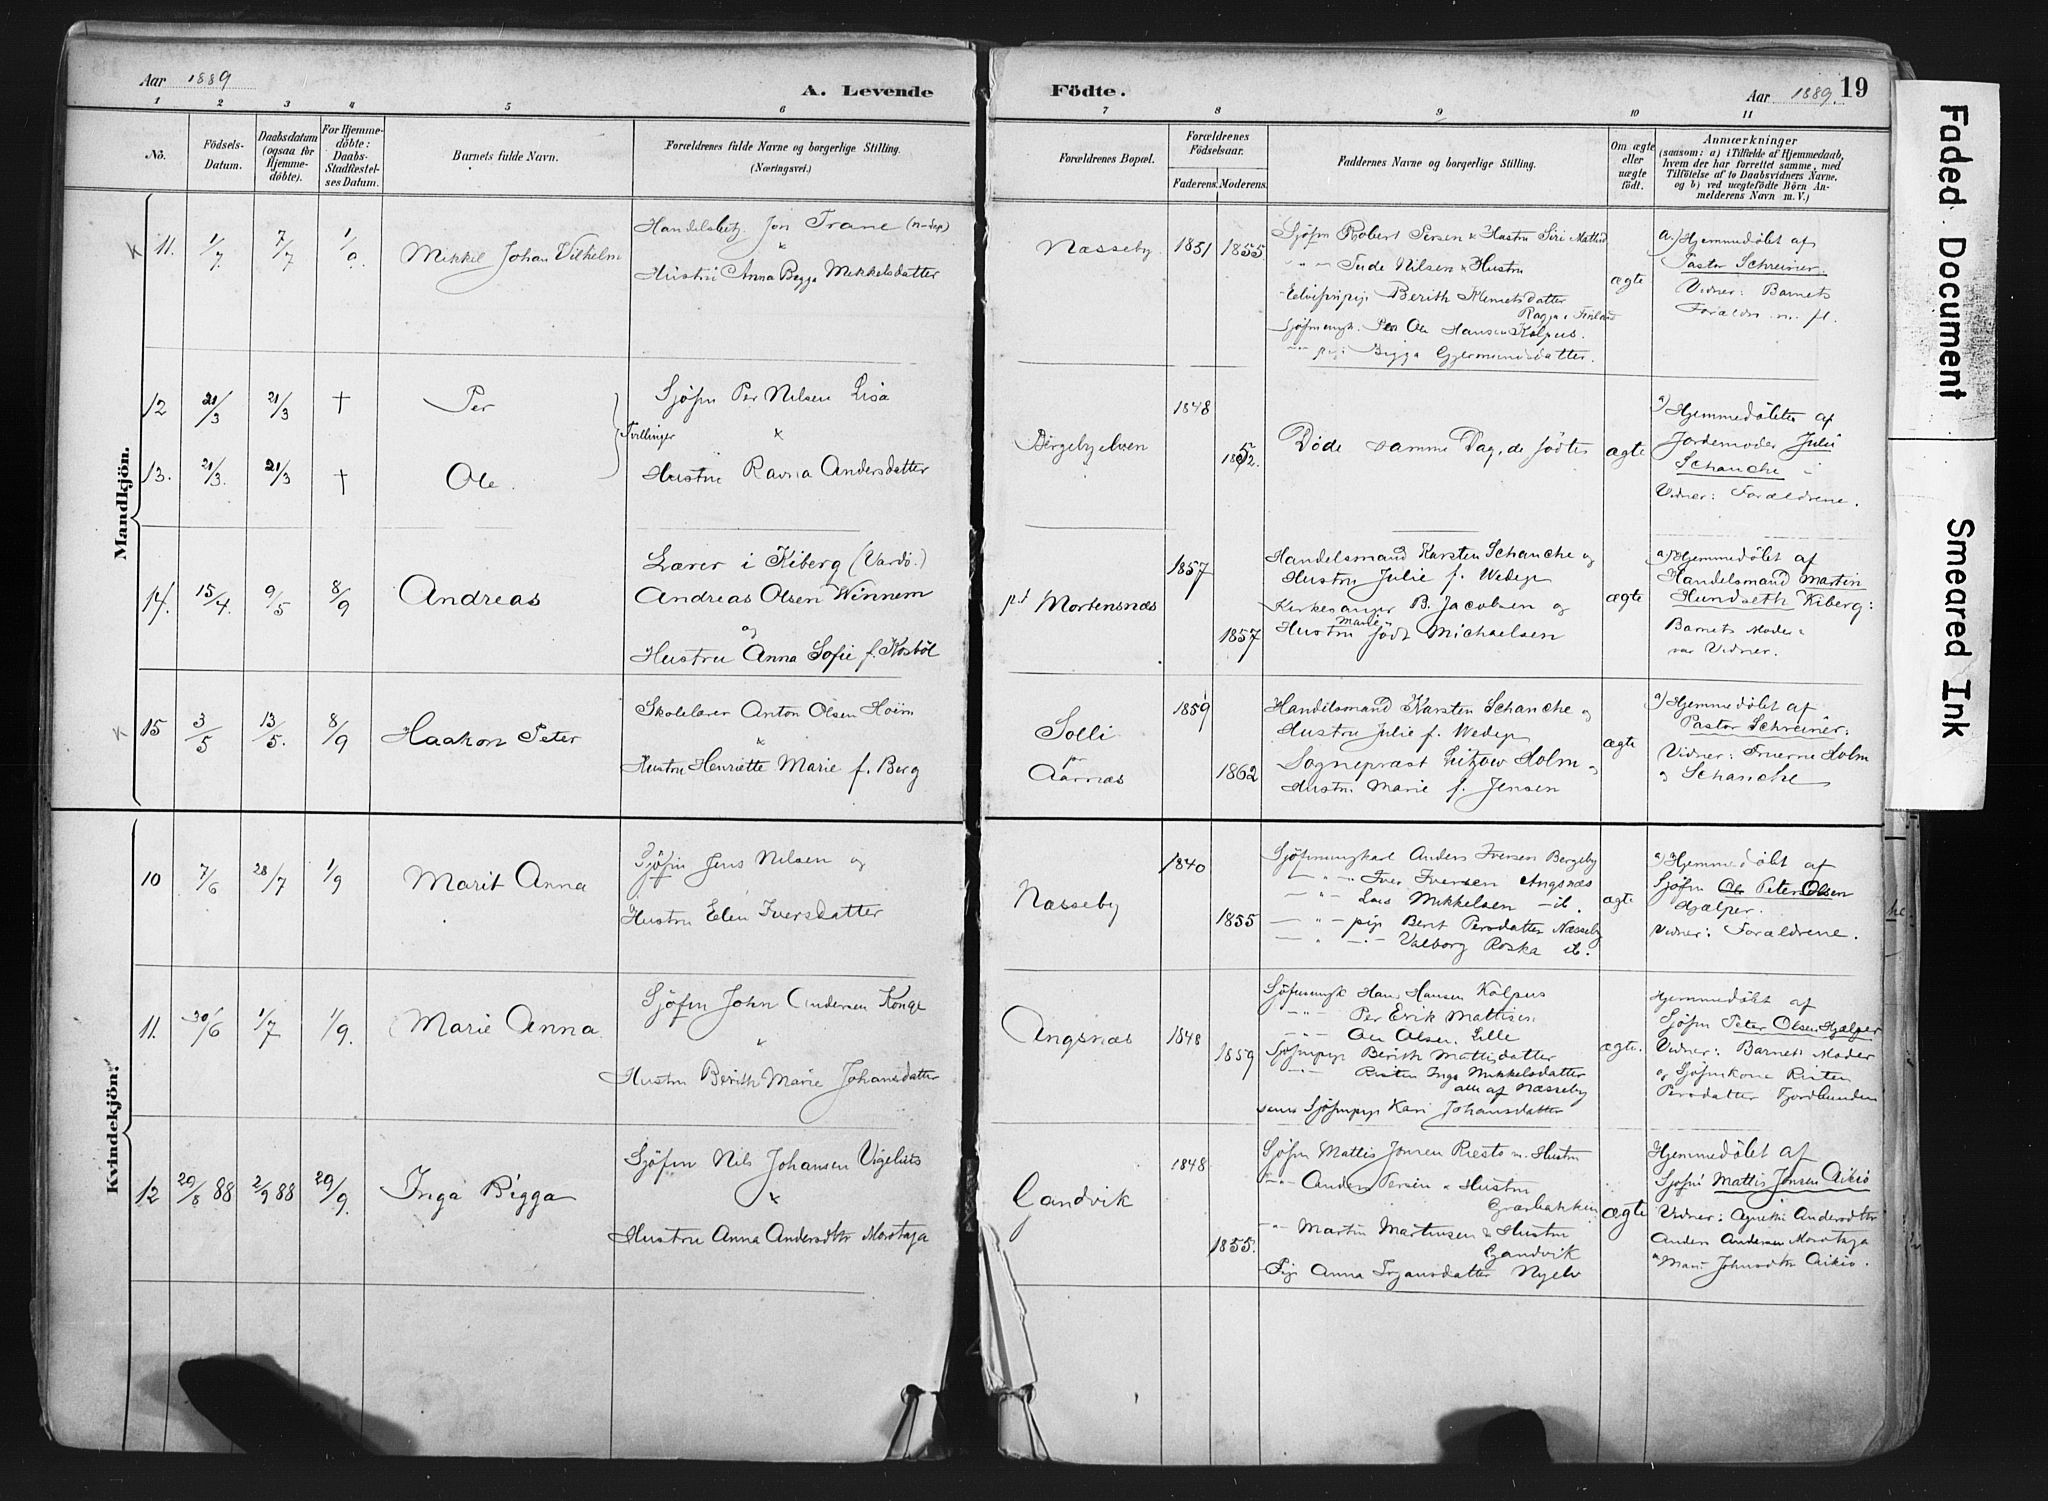 Aar 1889
A. Levende
Födte.
Aar 1889.
19
1 2 3 4 5 6 7 8 9 10 11
No.
Födsels-
Datum.
Daabsdatum
(ogsaa for
Hjemme-
döbte).
For Hjemme-
döbte:
Daabs-
Stadfæstel-
ses Datum.
Barnets fulde Navn.
Forældrenes fulde Navne og borgerlige Stilling.
(Næringsvei.)
Forældrenes Bopæl.
Forældrenes
Födselsaar.
Faderens.
Moderens.
Faddernes Navne og borgerlige Stilling.
Om ægte
eller
uægte
födt.
Anmærkninger
(saasom: a) i Tilfælde af Hjemmedaab,
hvem der har forrettet samme, med
Tilföielse af to Daabsvidners Navne,
og b) ved uægtefödte Börn An-
melderens Navn m. V.)
Mandkjön.
11. 1/7. 7/7 1/9. Mikkil Johan Vilhelm
Jon Trane
x
Hustru Anna Bigga Mikkelsdatter
Næsseby
1851 1855
Sjöfin Robert Persen x Hustru Siri Mattisd
" — Tude Nilsen x Hustru
Berith Klemetsdatter
Ole Hansen Kolpus.
Bigga Gjermundsdatter.
ægte
a.) Hjemmedöbt af
Pastor Schreiner.
Vidner: Barnets
Forældre m. fl.
12 21/3 21/3 † Per
Sjöfin Per Nilsen Lisa
Tvillinger
x
13. 21/3. 21/3 † Ole.
Hustru Ravna Andersdatter
Bergebyelven
1848
1852.
Döde samme Dag, de födtes
ægte
a) Hjemmedöbte af
Jordemoder Julie
Schanche
Vidner: Forældrene.
14. 15/4. 9/5 8/9 Andreas
Lærer i Kiberg (Vardö.)
Andreas Olsen Winnem
og
Hustru Anna Sofie f. Kosböl
p.t Mortensnæs
1857
1857
Handelsmand Karsten Schanche og
Hustru Julie f. Wedege
Kirkesanger B. Jacobsen og
Hustru Marie födt Michaelsen
ægte
a) Hjemmedöbt af
Handelsmand Martin
Hundseth Kiberg:
Barnets Moder
var Vidner.
15 3/5 13/5. 8/9 Haakon Peter
Skolelærer Anton Olsen Hoiim
x
Hustru Henriette Marie f. Berg
Solli
pr
Aarnæs
1859
1862
Handelsmand Karsten Schanche og
Hustru Julie f. Wedege
Sognepræst Lützow Holm og
Hustru Marie f. Jensen
ægte
a) Hjemmedöbt af
Pastor Schreiner:
Vidner: Fruerne Holm
og Schanche
Kvindekjön.
10 7/6 28/7 1/9 Marit Anna
Sjöfin Jens Nilsen og
Hustru Elen Iversdatter
Næsseby
1840
1855
Sjöfinungkarl Anders Iversen Bergeby
— " — Iver Iversen Angsnæs
— " — Lars Mikkelsen — ib.
— " — pige Berit Persdatter Næsseby
— " — Valborg Roska ib.
ægte
a) Hjemmedöbt af
Sjöfin Peter Olsen
Hjælper.
Vidner: Forældrene.
11. 30/6 1/7 1/9. Marie Anna
Sjöfin John Andersen Konge
x
Hustru Berith Marie Johansdatter
Angsnæs
1848
1859
Sjöfinungk Hans Hansen Kolpus
" — Per Erik Mattisen
" — Ole Olsen Lille
Sjöfinpige Berith Mattisdatter
" — Risten Inga Mikkelsdatter
alle af Næsseby
samt Sjöfinpige Kari Johansdatter
ægte.
Hjemmedöbt af
Sjöfin Peter Olsen Hjælper
Vidner: Barnets Moder
og Sjöfinkone Risten
Persdatter Fjordbunden
12 29/8 88 2/9 88 29/9. Inga Bigga
Sjöfin Nils Johansen Vigelius
x
Hustru Anna Andersdtr Morotaja
Gandvik
1848.
1855.
Sjöfin Mattis Jonsen Riesto m. Hustru
" — Anders Persen x Hustru
Græsbakken
" — Martin Martinsen x Hustru
Gandvik
Pige Anna Irjansdatter Nyelv
ægte
Hjemmedöbt af
Sjöfin Mattis Jonsen Aikio
Vidner: Agnethe Andersdtr
Anders Andersen Morotaja
Aikio.
Faded Document
Smeared Ink